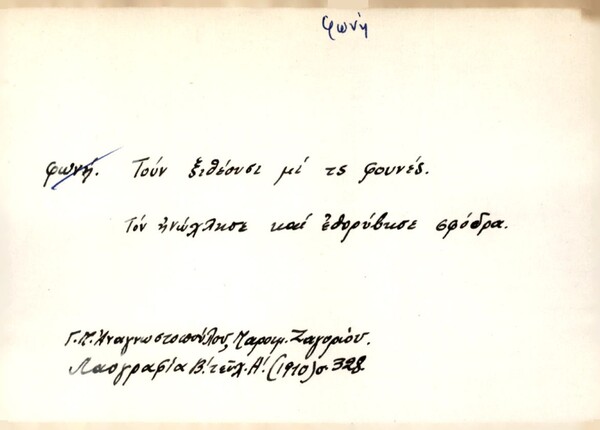 φωνή
φωνή. Τούν ξιθέουσι μί τς φουνές.
Τόν ἠνώχλησε καί ἐθορύβησε σφόδρα.
Γ. Π. Ἀναγνωστοπούλου, Παροιμ. Ζαγορίου.
Λαογραφία Β΄. τεῦχ. Α΄. (1910) σ. 328.